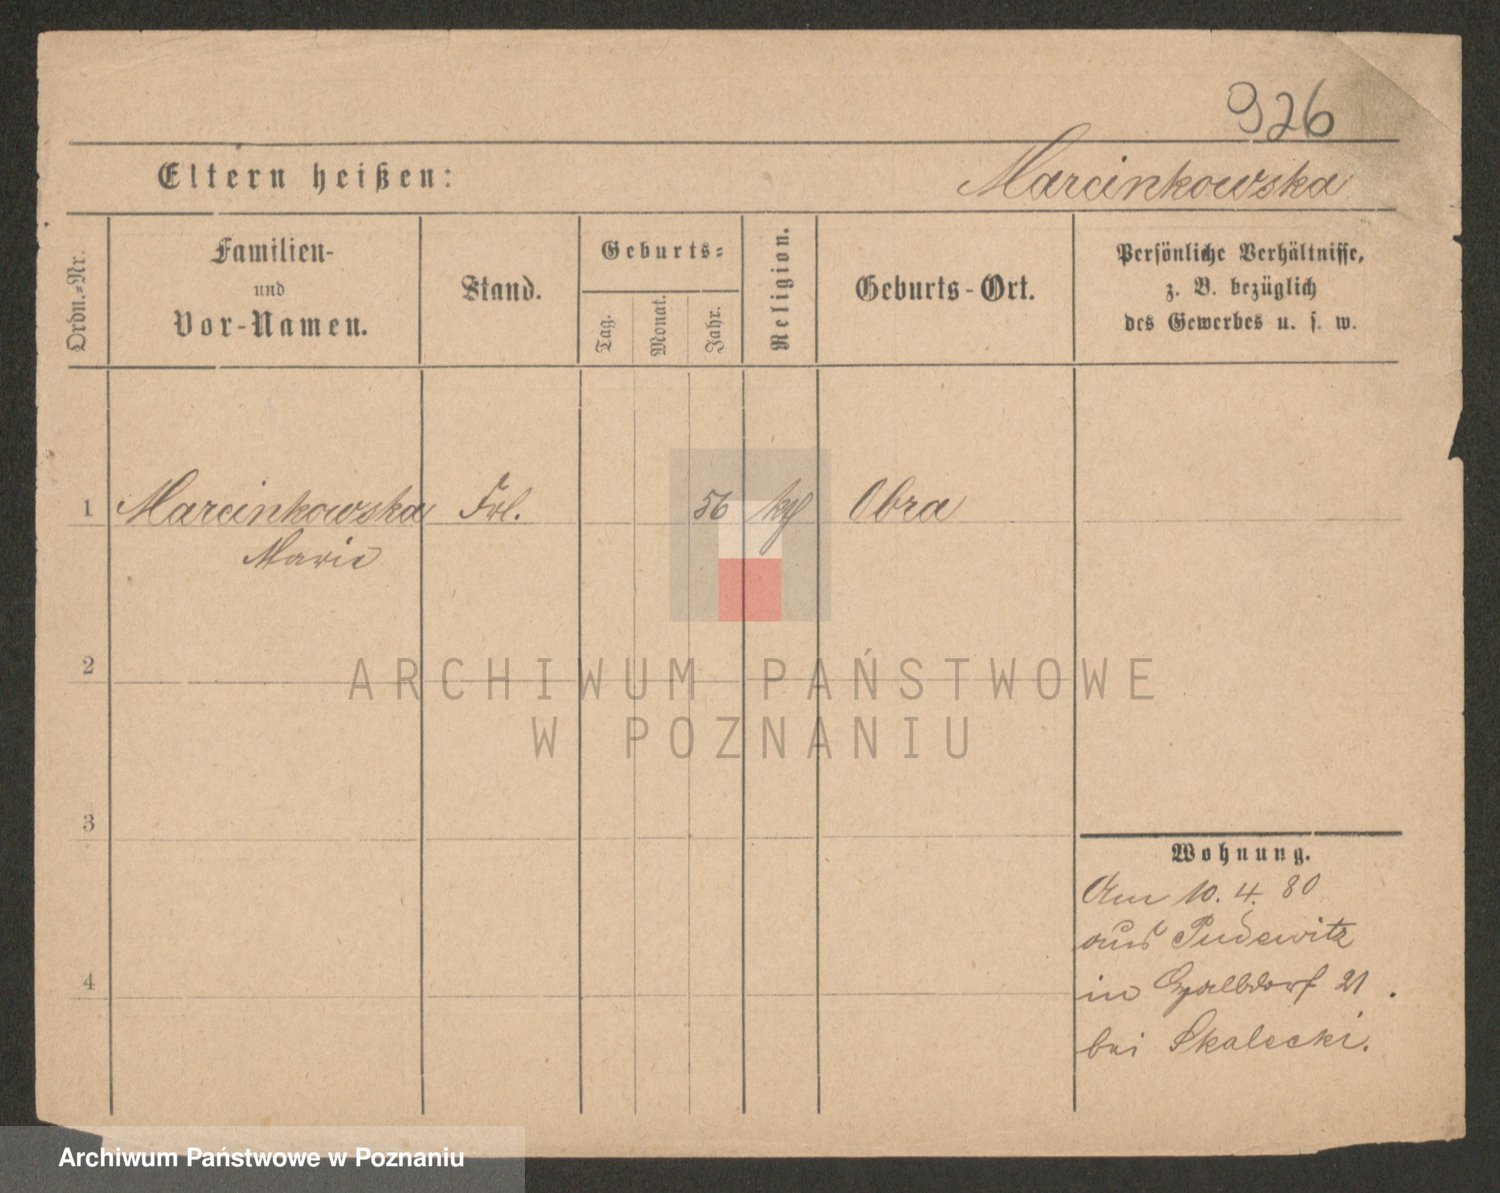 926
Eltern heißen: Marcinkowska
Ordn.-Nr.
Familien-
und
Vor-Namen.
Stand.
Geburts-
Tag.
Monat.
Jahr.
Religion.
Geburts-Ort.
Persönliche Verhältnisse,
z. B. bezüglich
des Gewerbes u. s. w.
1 Marcinkowska Frl. 56 Obra
Marie
2
ARCHIWUM PAŃSTWOWE
W POZNANIU
3
Wohnung.
Am 10. 4. 80
aus Pudewitz
4
in 21.
bei Skalecki.
Archiwum Państwowe w Poznaniu